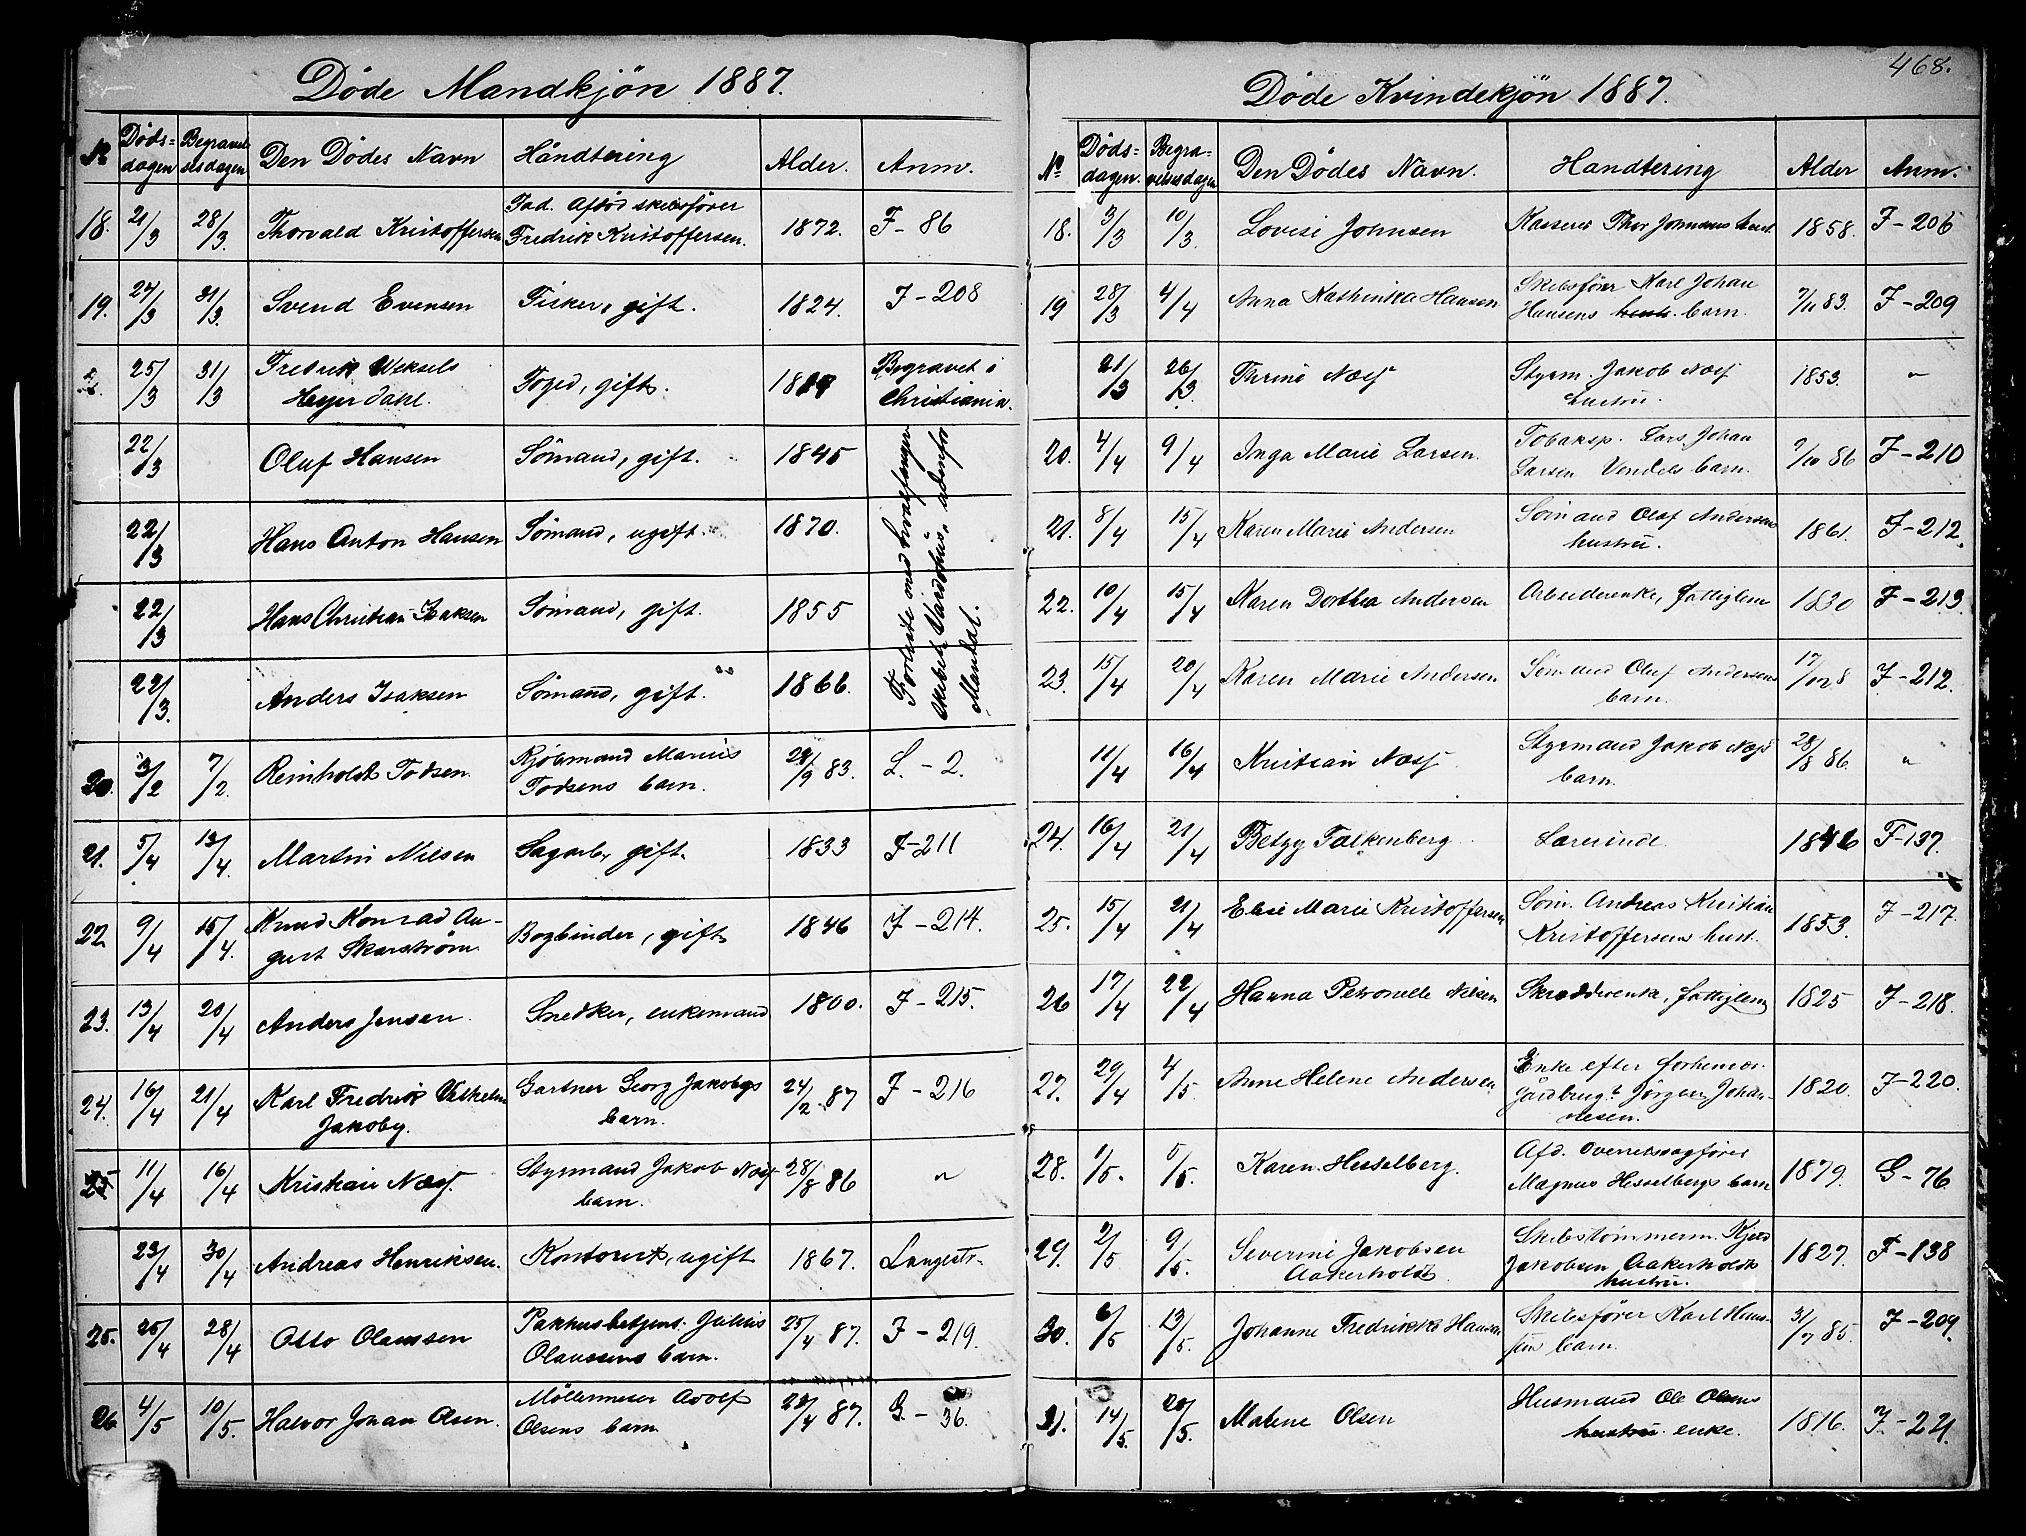 468.
Døde Mandkjøn 1887.
No Døds-dagen Begravelsesdagen Den Dødes Navn Håndtering Alder. Anm.
18. 21/3 28/3. Thorvald Kristoffersen Fad. Afdød skibsfører Fredrik Kristoffersen. 1872. F - 86
19. 24/3 31/3. Svend Evensen Fisker, gift. 1824. J - 208
25/3 31/3 Fredrik Weksels Heyerdahl. Foged, gift. Begravet i Christiania.
22/3 Oluf Hansen Sømand, gift. 1845
22/3 Hans Anton Hansen Sømand, ugift. 1870.
22/3 Hans Christian Isaksen Sømand, gift. 1855
22/3. Anders Isaksen Sømand, gift. 1866.
Forliste med hvalfanger-
skibet Vardøhus, udenfor
Mandal.
20. 3/2 7/2. Reinholdt Todsen. Kjøbmand Marius Todsens barn. 28/9 83. L. - 2.
21. 5/4 13/4. Martin Nilsen Sagarb., gift. 1833 J - 211
22 9/4 15/4. Knud Konrad August Skarstrøm. Bogbinder, gift 1846 J - 214.
23. 13/4 20/4 Anders Jensen. Snedker, enkemand 1800. J - 215.
24. 16/4 21/4 Karl Fredrik Vilhelm Jakoby. Gartner Georg Jakobys barn. 24/2 87 J - 216
25 11/4 16/4 Kristian Næss. Styrmand Jakob Næss barn. 28/8 86 "
23/4 30/4 Andreas Henriksen. Kontorist, ugift 1867. Langestr.
25. 25/4 28/4 Otto Olaussen Pakhusbetjent Julius Olaussens barn. 25/4 87. J - 219.
26 4/5 10/5. Halvor Johan Olsen. Møllermester Adolf Olsens barn 28/4 87. G. - 36.
Døde Kvindekjøn 1887.
No Døds-dagen. Begravelsesdagen Den Dødes Navn. Handtering Alder Anm.
18. 3/3 10/3. Lovise Johnsen Kasserer Thor Johnsens hust. 1858. F - 206
19 28/3 4/4 Anna Kathinka Hansen Skibsfører Karl Johan Hansens hust. barn. 7/11 83. J - 209
21/3 26/3. Thrine Næss Styrm. Jakob Næss hustru. 1853. "
20. 4/4 9/4 Inga Marie Larsen. Tobaksp. Lars Johan Larsen Vendels barn. 9/10 86 J - 210
21. 8/4 15/4 Karen Marie Andersen Sømand Olaf Andersens hustru. 1861. J - 212.
22. 10/4 15/4 Karen Dorthea Andersen Arbeiderenke, fattiglem 1830 J - 213.
23. 15/4 20/4 Karen Marie Andersen Sømand Oluf Andersens barn. J - 212.
11/4 16/4 Kristian Næss Styrmand Jakob Næss barn. 28/8 86 "
24. 16/4 21/4 Betzy Falkenberg Lærerinde. 1846 F - 137.
25. 15/4 21/4 Elise Marie Kristoffersen Søm. Andreas Kristian Kristoffersens hust. 1853. J - 217.
26 17/4 22/4 Hanna Petronelle Nilsen Skrædderenke, fattiglem 1825 J - 218.
27. 29/4 4/5. Anne Helene Andersen Enke efter forhenvær. Gårdbrug. Jørgen Johannesen. 1820. J - 220.
28. 1/5. 5/5. Karen Hesselberg. Afd. Overretssagfører Magnus Hesselbergs barn 1879. G - 76
29. 2/5 9/5. Severine Jakobsen Aakerholdt Skibstømmerm. Kjeld Jakobsen Aakerholdts hustru. 1827. F - 138
30. 6/5 13/5. Johanne Fredrikke Hansen Skibsfører Karl Hansens barn. 31/7 85. J - 209.
31. 14/5. 20/5. Malene Olsen Husmand Ole Olsens hustru. enke. 1816. J - 221.